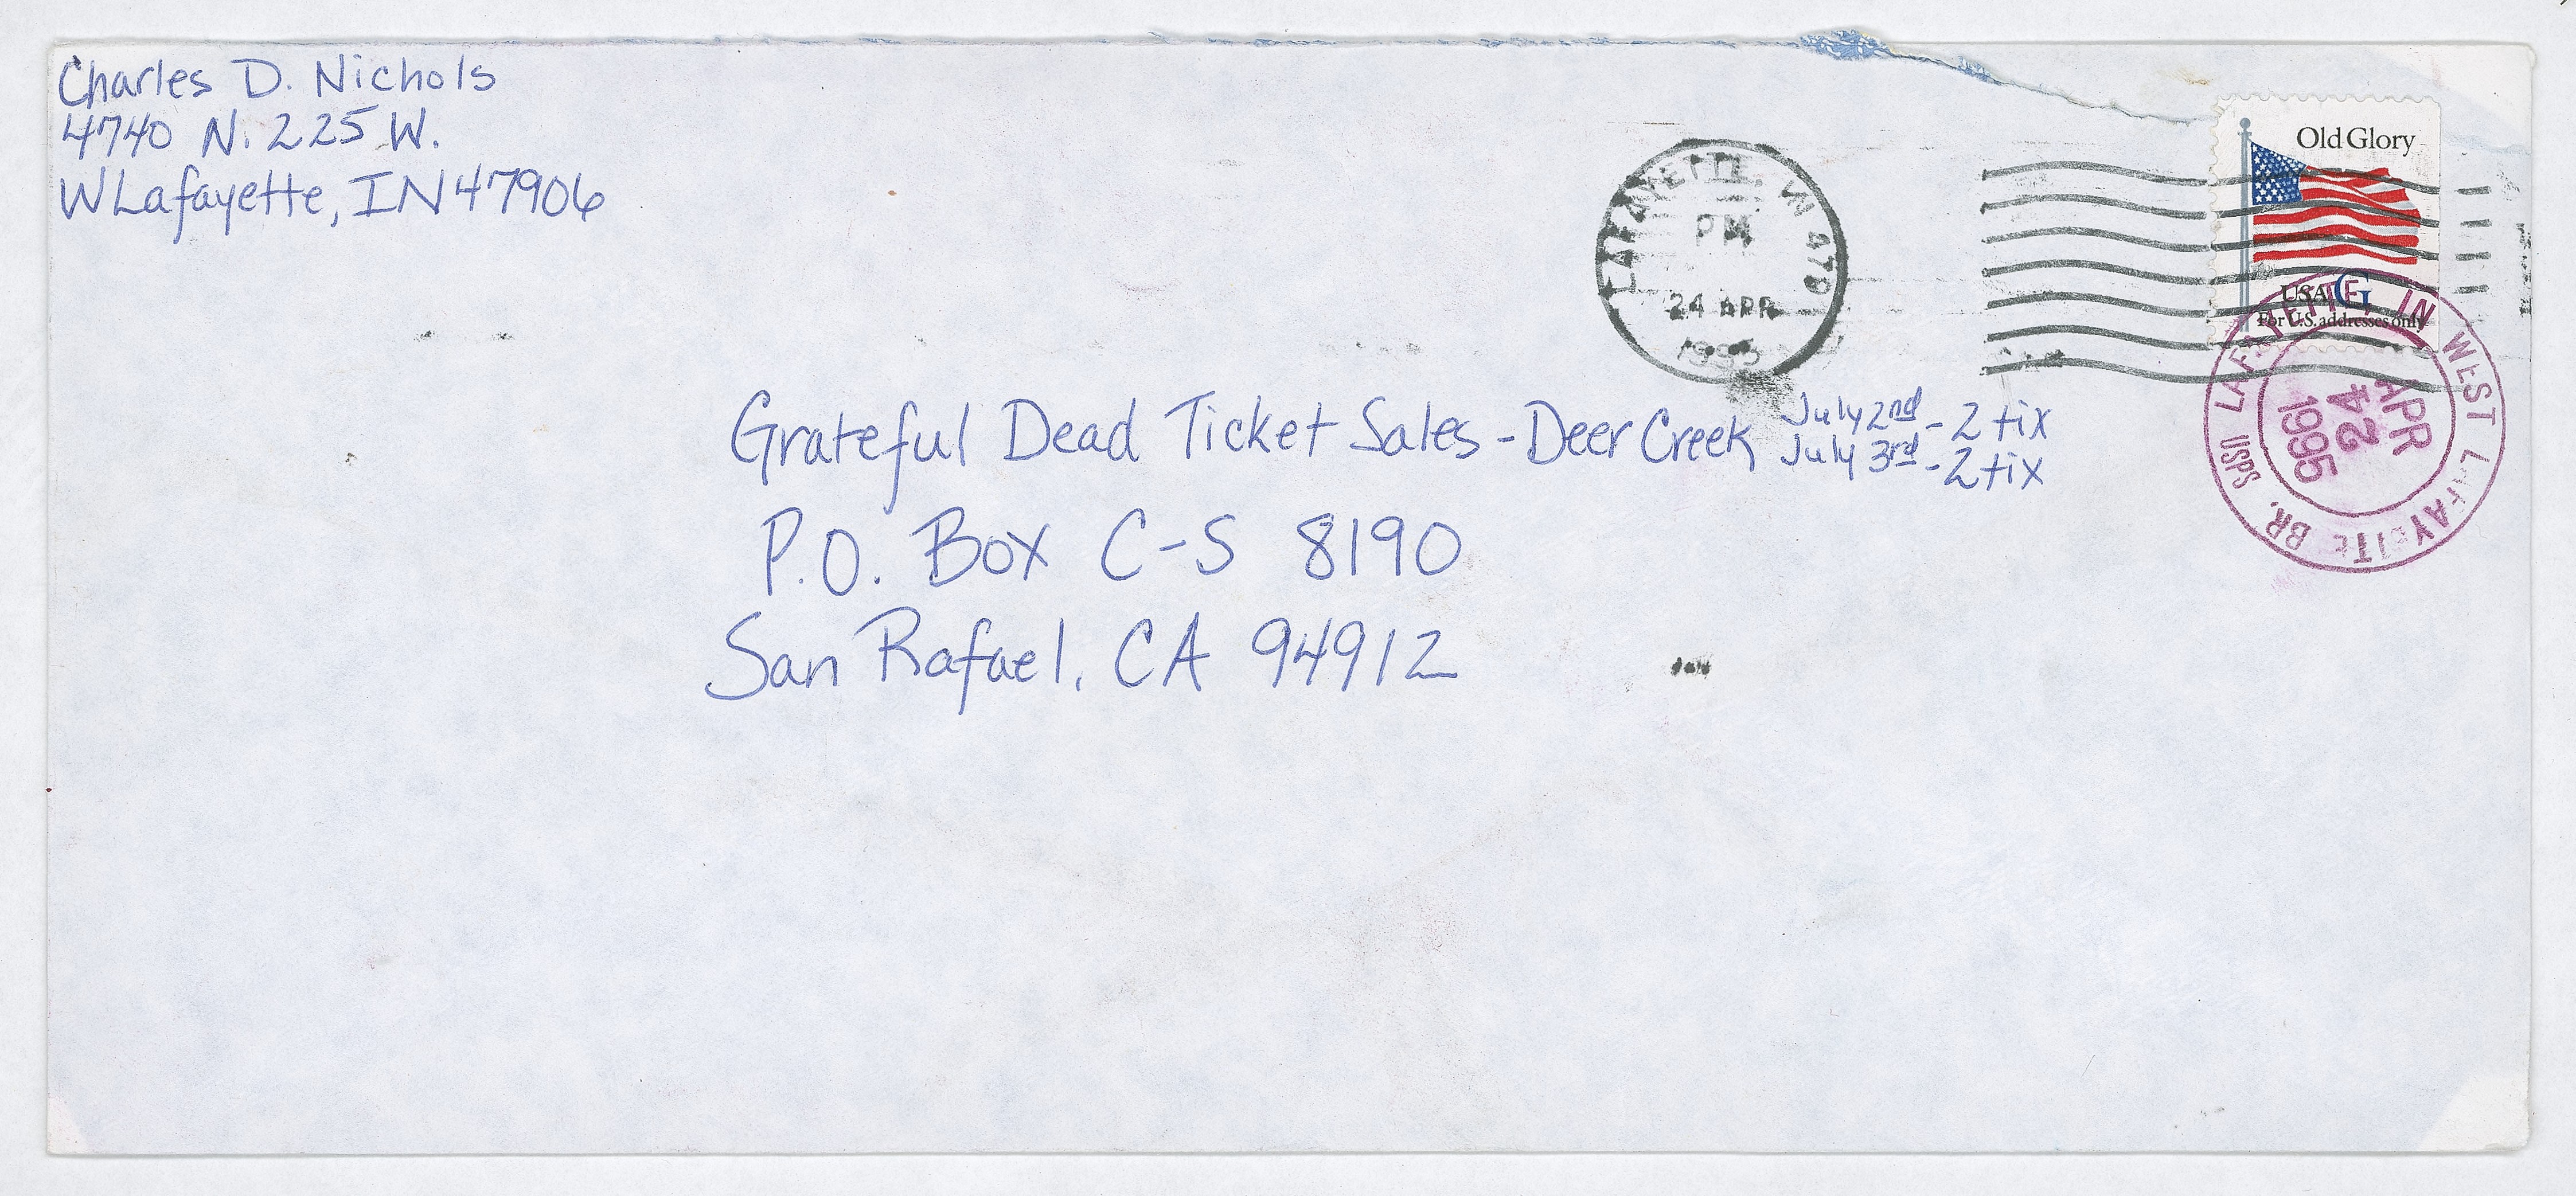 Charles D. Nichols
4740 N. 225 W.
W Lafayette, IN 47906
LAFAYETTE, IN 479
PM
24 APR
1995
Old Glory
USA G
For U.S. addresses only
LAFAYETTE IN WEST LAFAYETTE BR. USPS
APR
24
1995
Grateful Dead Ticket Sales - Deer Creek
July 2nd - 2 tix
July 3rd - 2 tix
P.O. Box C-S 8190
San Rafael, CA 94912